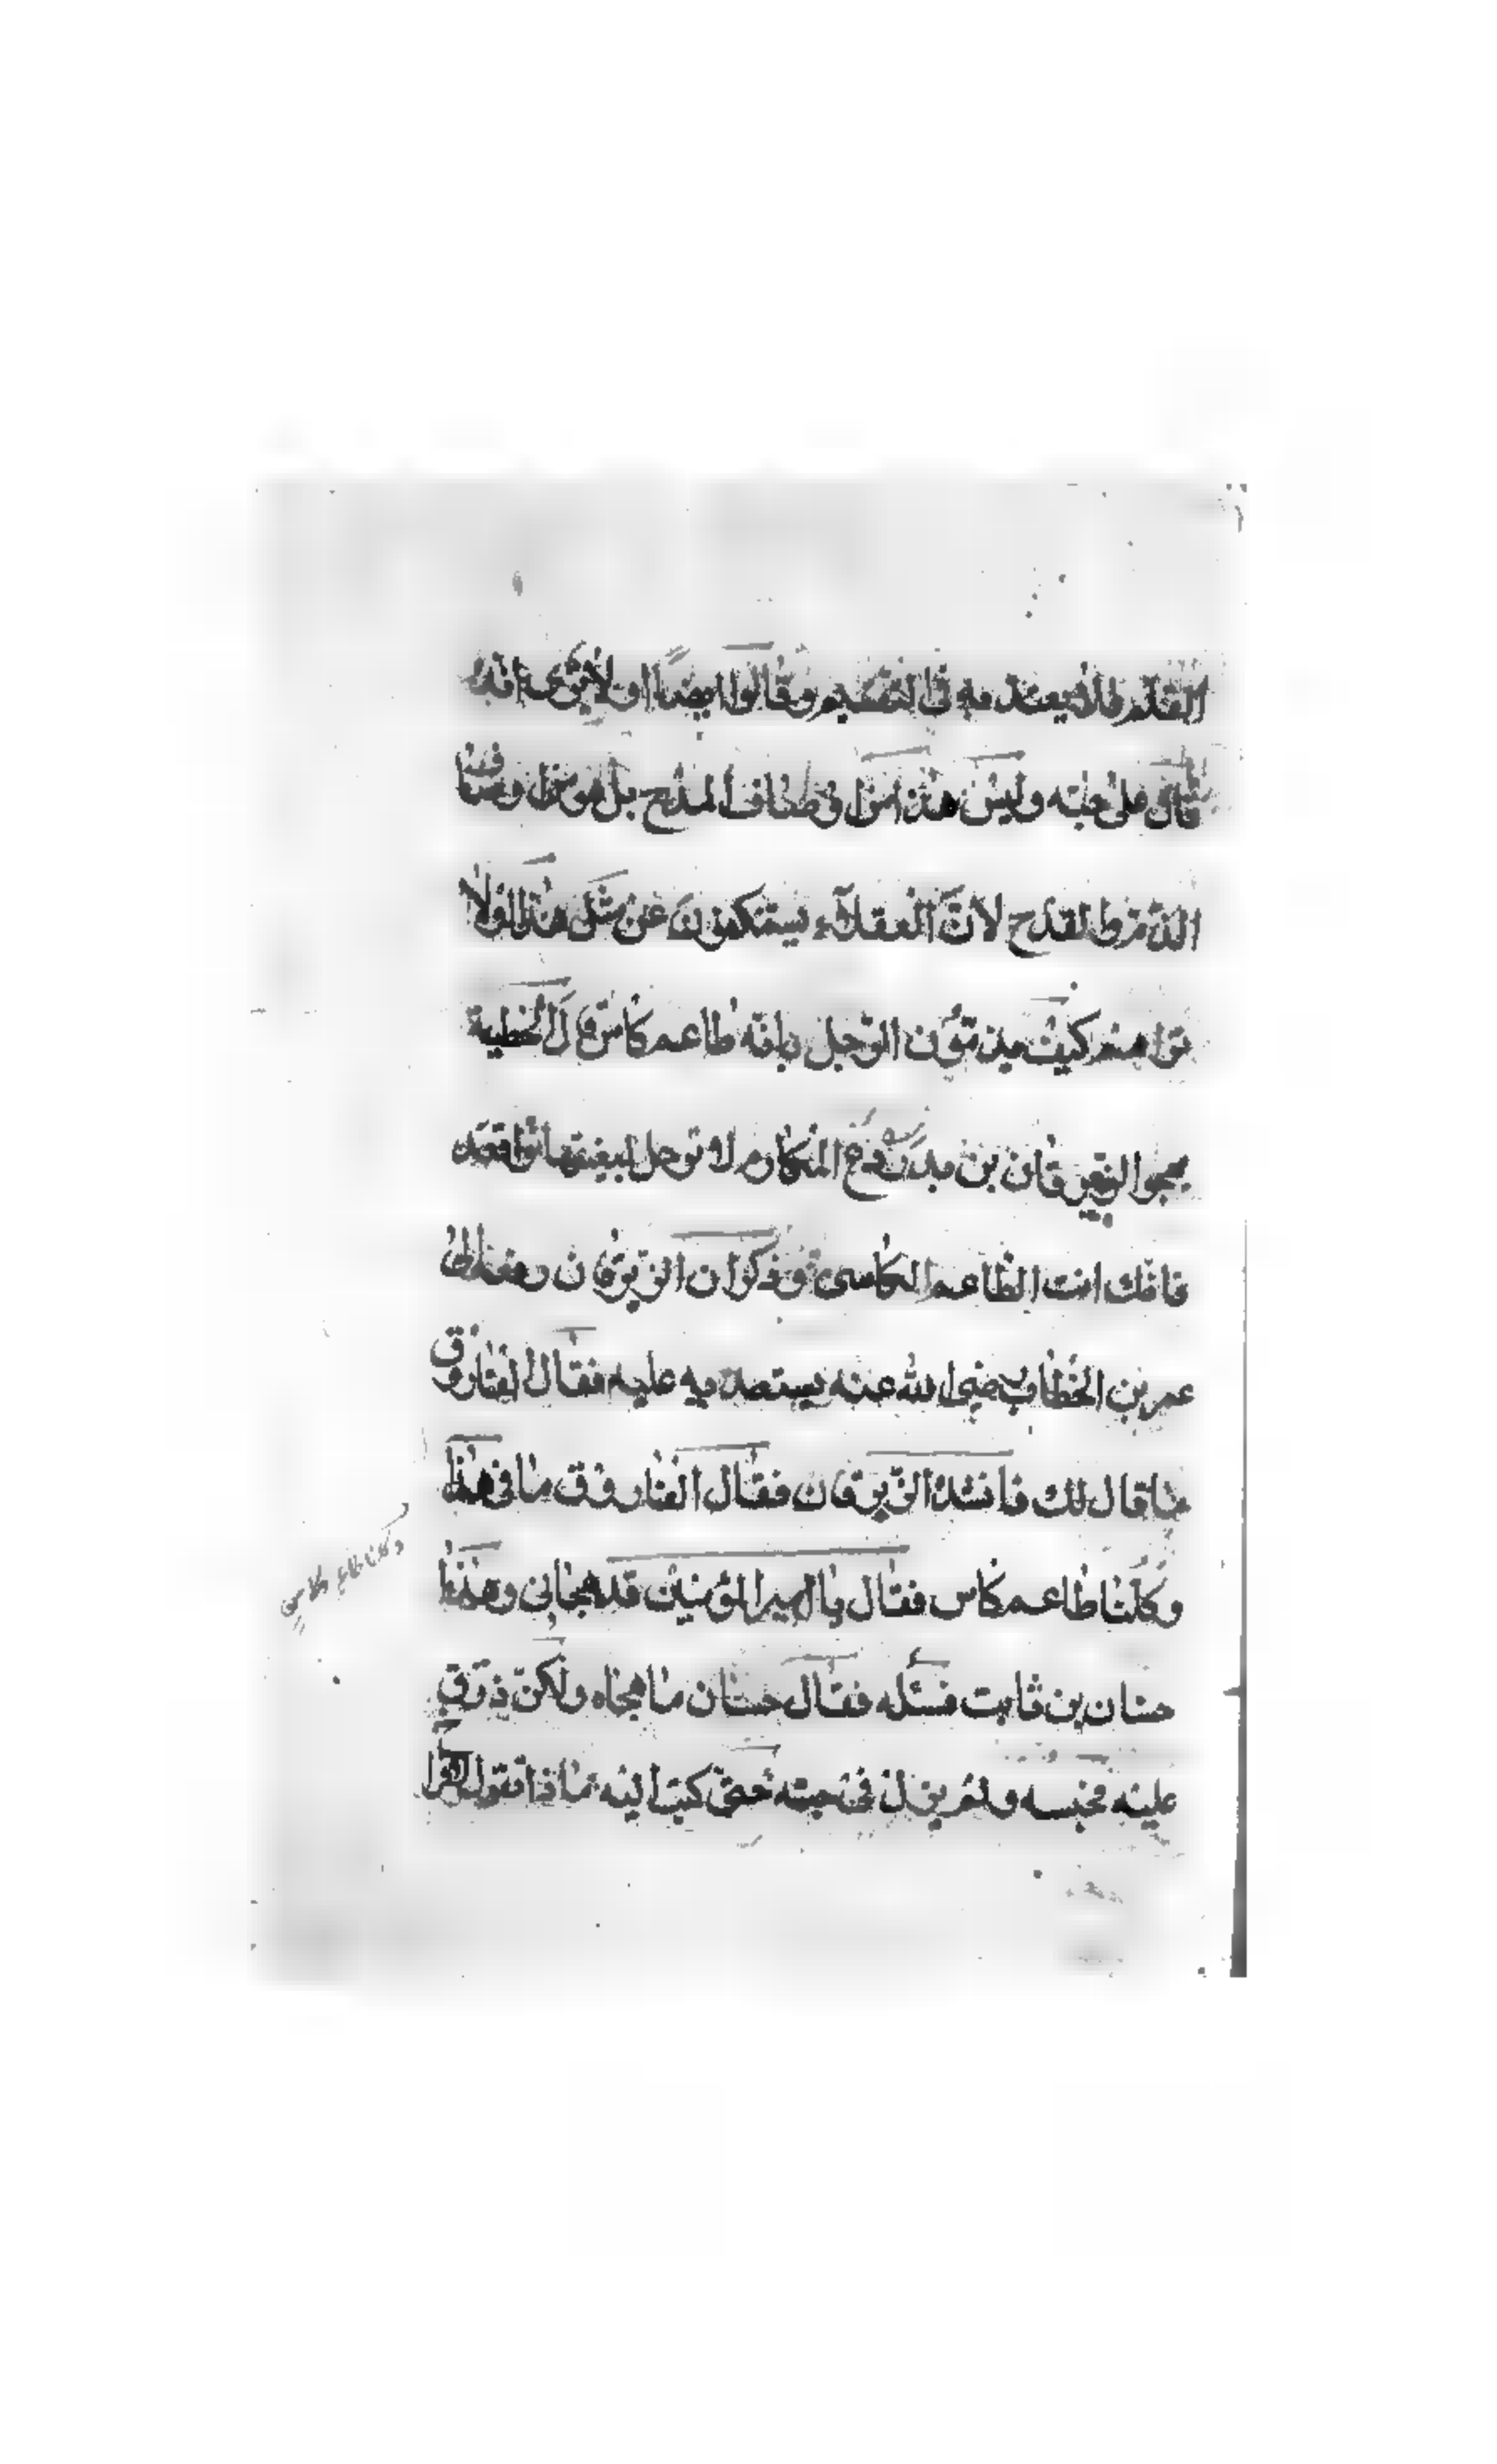 القدم فلا يعتد به في التقديم وقالوا ايضا اولا يرى انه
قال على حبه وليس هذا من اوصاف المدح بل هو من اوصاف
الذم والقدح لان العقلاء يستنكفون عن مثل هذا اولا
ترا هم كيف يذمون الرجل بانه طاعم كاس قال الحطية
يهجو الزبرقان بن بدر دع المكارم لا ترحل لبغيتها واقعد
فانك انت الطاعم الكاسى وذكر ان الزبرقان رفعه الى
عمر بن الخطاب رضى الله عنه يستعديه عليه فقال الفاروق
ما قال لك فانشد الزبرقان فقال الفاروق ما في هذا
وكلنا طاعم كاس فقال يا امير المؤمنين قد هجاني وهذا
حسان بن ثابت فسئله فقال حسان ما هجاه ولكن ذرق
عليه فحبسه ولم يزل في حبسه حتى كتب اليه ماذا تقول لافراخ
وكلنا طاعم كاسي